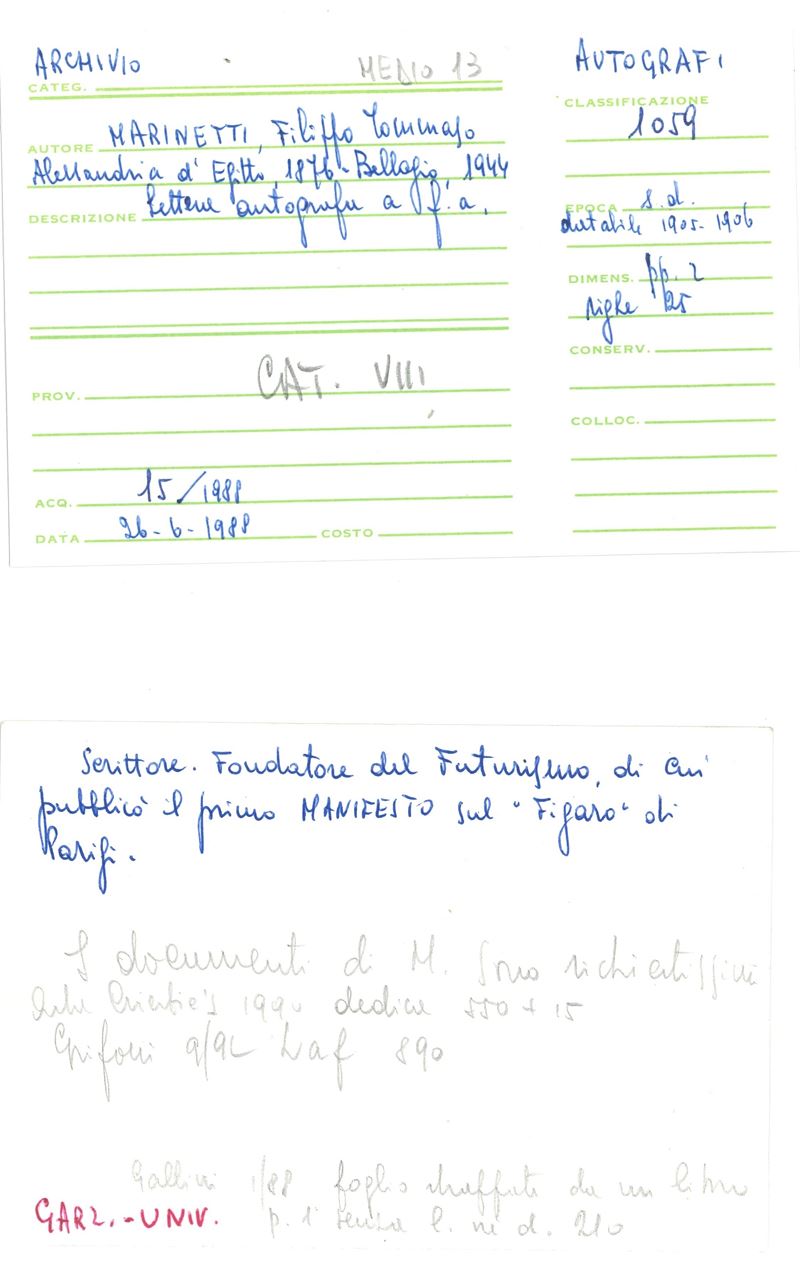 ARCHIVIO
CATEG.
MEDIO 13
AUTORE MARINETTI, Filippo Tommaso
Alessandria d'Egitto, 1876 - Bellagio, 1944
DESCRIZIONE Lettera autografa a f.a.
PROV. CAT. VIII
ACQ. 15/1988
DATA 26-6-1988 COSTO
AUTOGRAFI
CLASSIFICAZIONE
1059
EPOCA s.d.
databile 1905-1906
DIMENS. pp. 2
righe 25
CONSERV.
COLLOC.
Scrittore. Fondatore del Futurismo, di cui
pubblicò il primo MANIFESTO sul "Figaro" di
Parigi.
I documenti di M. sono richiestissimi
Asta Christie's 1990 dedica 550 + 15
Grifoni 9/92 Laf 890
Gallini 1/88 foglio staffato da un libro
p. 1 senza l. né d. 210
GARZ.-UNIV.